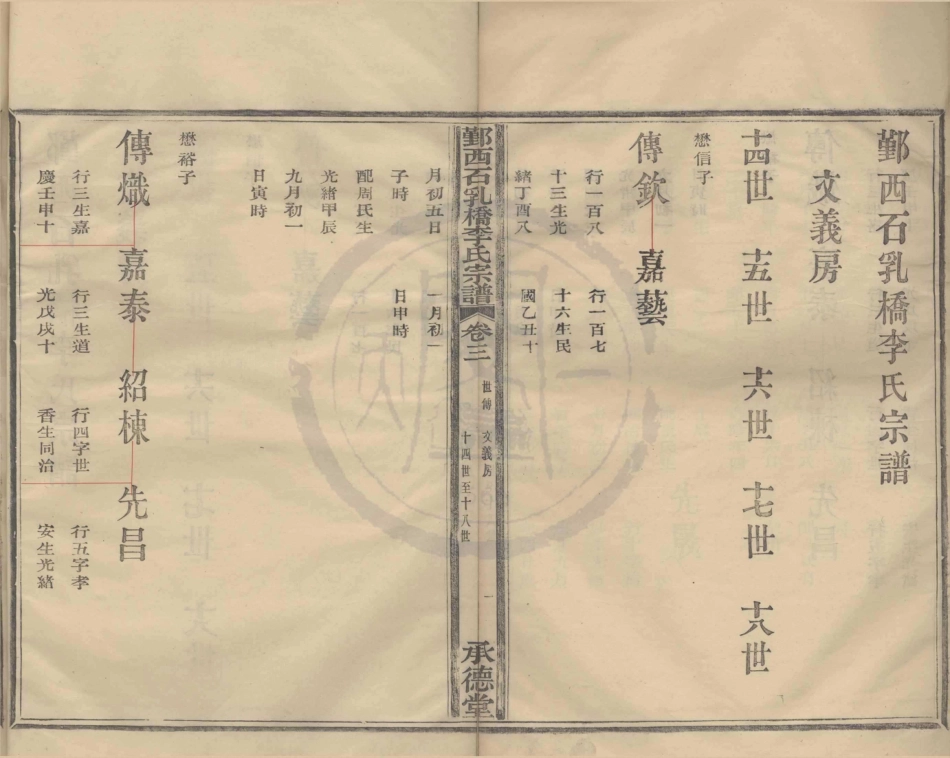 鄞西石乳橋李氏宗譜
文義房
十四世 十五世 十六世 十七世 十八世
懋信子
傳欽 嘉藝
行一百八 行一百七
十三生光 十六生民
緒丁酉八 國乙丑十
鄞西石乳橋李氏宗譜 卷三 世傳 文義房 十四世至十八世 一 承德堂
月初五日 一月初一
子時 日申時
配周氏生
光緒甲辰
九月初一
日寅時
懋裕子
傳熾 嘉泰 紹棟 先昌
行三生嘉 行三生道 行四字世 行五字孝
慶壬申十 光戊戌十 香生同治 安生光緒